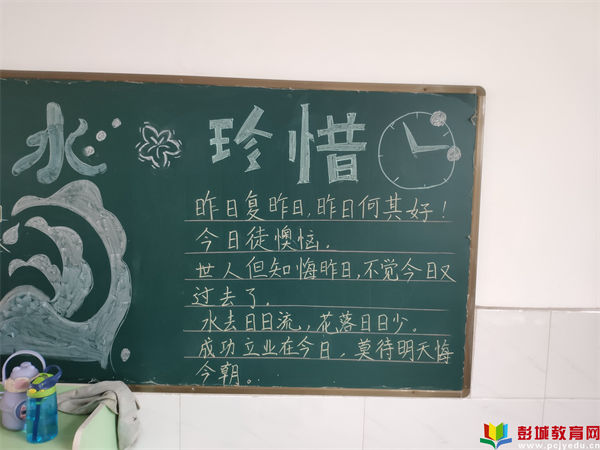 水 珍惜
昨日复昨日,昨日何其好!
今日徒懊恼.
世人但知悔昨日,不觉今日又
过去了.
水去日日流,花落日日少.
成功立业在今日,莫待明天悔
今朝。
彭城教育网
www.pcjyedu.cn